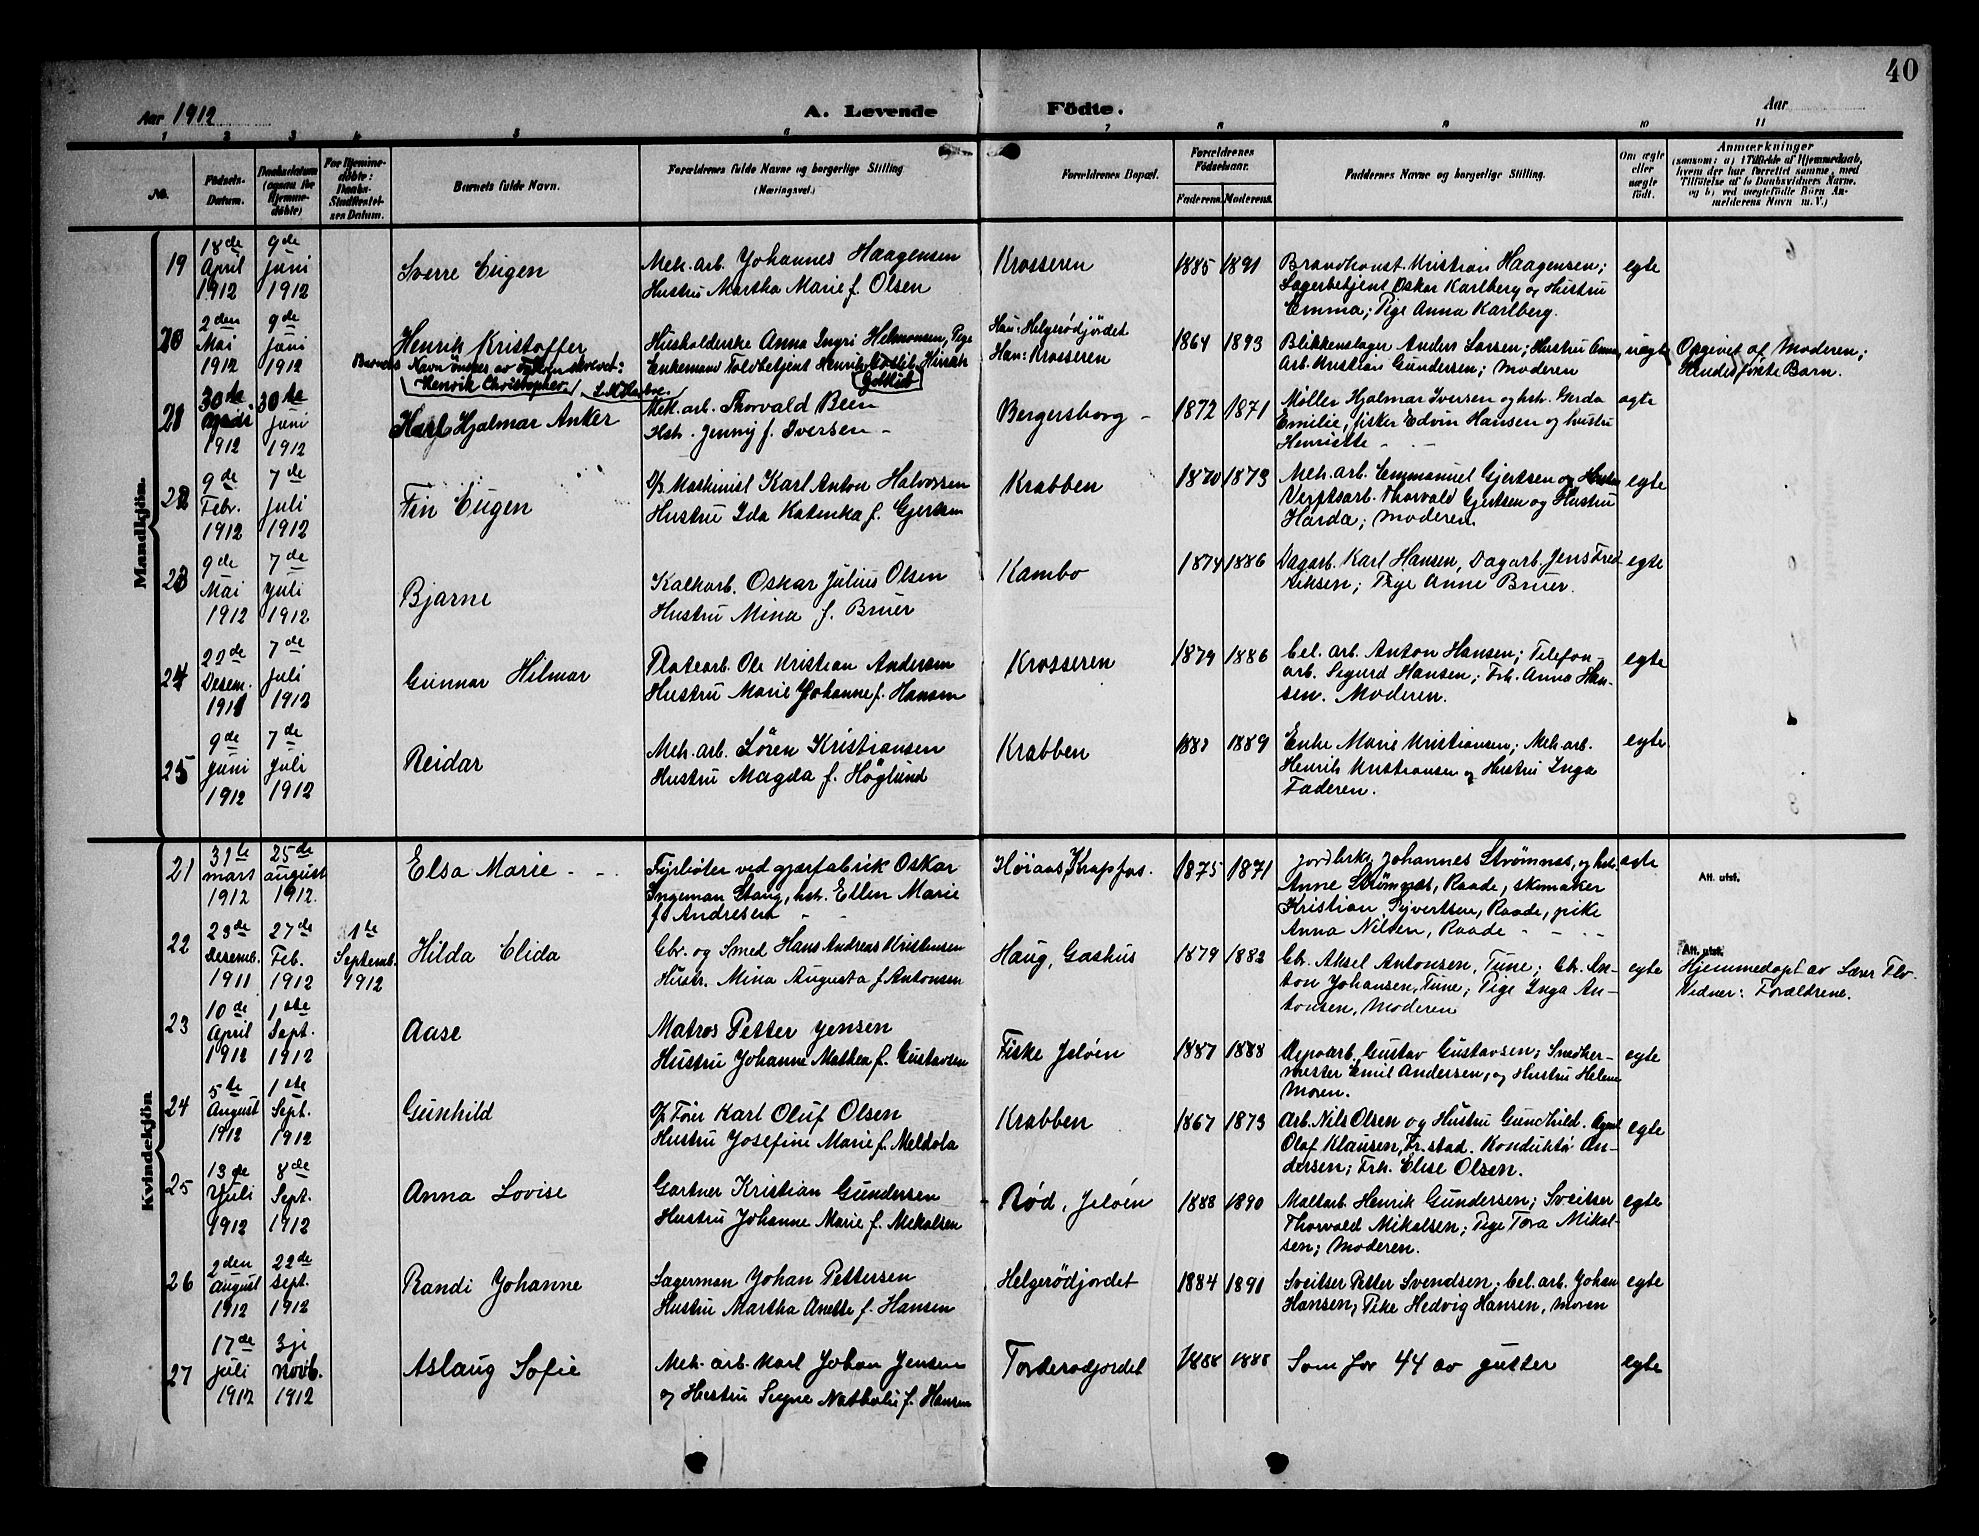 40
Aar 1912
A. Levende Födte.
Aar
1 2 3 4 5 6 7 8 9 10 11
No.
Födsels-
Datum.
Daabsdatum
(ogsaa for
Hjemme-
döbte)
For Hjemme-
döbte:
Daabs-
Stadfæstel-
ses Datum.
Barnets fulde Navn.
Forældrenes fulde Navne og borgerlige Stilling
(Næringsvei.)
Forældrenes Bopæl.
Forældrenes
Födselsaar.
Faderens. Moderens.
Faddernes Navne og borgerlige Stilling.
Om ægte
eller
uægte
födt.
Anmærkninger
(saasom: a) i Tilfælde af Hjemmedaab,
hvem der har forrettet samme, med
Tilföielse af to Daabsvidners Navne,
og b) ved uægtefödte Börn An-
melderens Navn m. V.)
Mandkjön.
19
18de
April
1912
9de
juni
1912
Sverre Eugen
Mek. arb. Johannes Haagensen
Hustru Martha Marie f. Olsen
Krosseren
1885 1891
Brandkonst. Kristian Haagensen;
Lagerbetjent Oskar Karlberg og Hustru
Emma; Pige Anna Karlberg.
egte
20
2den
Mai
1912
9de
juni
1912
Henrik Kristoffer
Barnets Navn ønskes av
skrevet:
Henrik Christopher
Husholderske Anna Ingri Helmonsen, Pige
Enkemand Toldbetjent Henrik
Gotlieb
Hun: Helgerødjordet
Han: Krosseren
1864 1893
Blikkenslager Anders Larsen; Hustru Anna,
Arb. Kristian Gundersen; Moderen
uegte
Opgivet af Moderen;
Andet føste Barn.
21
30te
April
1912
30te
juni
1912
Karl Hjalmar Anker
Mek. arb. Thorvald Been
Hst. Jenny f. Iversen -
Bergersborg -
1872 1871
Møller Hjalmar Iversen og hst. Gerda
Emilie, fisker Edvin Hansen og hustru
Henriette - -
egte
22
9de
Febr.
1912
7de
juli
1912
Fin Eugen
D/p Maskinist Karl Anton Halvorsen
Hustru Ida Katinka f. Gjertsen
Krabben
1870 1873
Mek. arb. Emmanuel Gjertsen og Hustru
Verftsarb. Thorvald Gjertsen og Hustru
Harda; Moderen
egte
23
9de
Mai
1912
7de
Juli
1912
Bjarne
Kalkarb. Oskar Julius Olsen
Hustru Mina f. Bruer
Kambo
1874 1886
Dagarb. Karl Hansen, Dagarb. Jens Fred-
riksen; Pige Anne Bruer.
egte
24
22de
Desem.
1911
7de
juli
1912
Gunnar Hilmar
Platearb. Ole Kristian Andersen
Hustru Marie Johanne f. Hansen
Krosseren
1879 1886
Cel. arb. Anton Hansen; Telefon-
arb. Sigurd Hansen; Frk. Anna Han-
sen. Moderen.
egte
25
9de
juni
1912
7de
Juli
1912
Reidar
Mek. arb. Sören Kristiansen
Hustru Magda f. Höglund
Krabben
1889
Enke Marie Kristiansen; Mek. arb.
Henrik Kristiansen og Hustru Inga
Faderen.
egte
Kvindekjön.
21
31te
mars
1912
25de
august
1912.
Elsa Marie - -
Fyrbøter ved gjærfabrik Oskar
Ingeman Stang, hst. Ellen Marie
f. Andresen - -
Høiaas, Krapfos.
1875 1871
Jordbrker Johannes Strømnes, og hst.
Anne Strømnes, Raade, skomaker
Kristian Sivertsen, Raade, pike
Anna Nilsen, Raade - - - -
egte
Att. utst.
22
23de
Desemb.
1911
27de
Feb.
1912
1te
Septemb.
1912
Hilda Elida
Gbr. og Smed Hans Andreas Kristensen
Hustr. Mina Augusta f Antonsen
Haug, Gashus
1879 1882
Gb. Aksel Antonsen, Tune; Gb. An-
ton Johansen, Tune; Pige Inga An-
tonsen, Moderen
egte
Att. utst.
Hjemmedøpt av Lærer Flo.
Vidner: Forældrene.
23
10de
April
1912
1ste
Sept.
1912
Aase
Matros Petter Jensen
Hustru Johanne Mathea f. Gustavsen
Fiske Jeløen
1887 1888
Gustav Gustavsen; Snedker-
mester Emil Andersen, og Hustru Helene
Moren.
egte
24
5te
August
1912
1ste
Sept.
1912
Gunhild
D/p Føier Karl Oluf Olsen
Hustru Josefine Marie f. Meldola
Krabben
1867 1873
Arb. Nils Olsen og Hustru Gundhild. Agent
Olaf Klausen, Fr.stad. Konduktø An-
dersen; Frk. Elise Olsen.
egte
25
13de
Juli
1912
8de
Sept.
1912
Anna Lovise
Gartner Kristian Gundersen
Hustru Johanne Marie f. Mikalsen
Rød, Jeløen
1888 1890
Maltarb. Henrik Gundersen; Sveitser
Thorvald Mikalsen; Pige Tora Mikal-
sen; Moderen.
egte
26
2den
August
1912
22de
sept.
1912
Randi Johanne
Lagerman Johan Pettersen
Hustru Martha Anette f. Hansen
Helgerödjordet
1884 1891
Sveitser Petter Svendsen; cel. arb. Johan
Hansen; Pike Hedvig Hansen, Moren
egte
27
17de
juli
1912
3je
novb.
1912
Aslaug Sofie
Mek. arb. Karl Johan Jensen
og Hustru Signe Nathalie f. Hansen
Torderødjordet
1888 1888
Som for 44 av gutter
egte